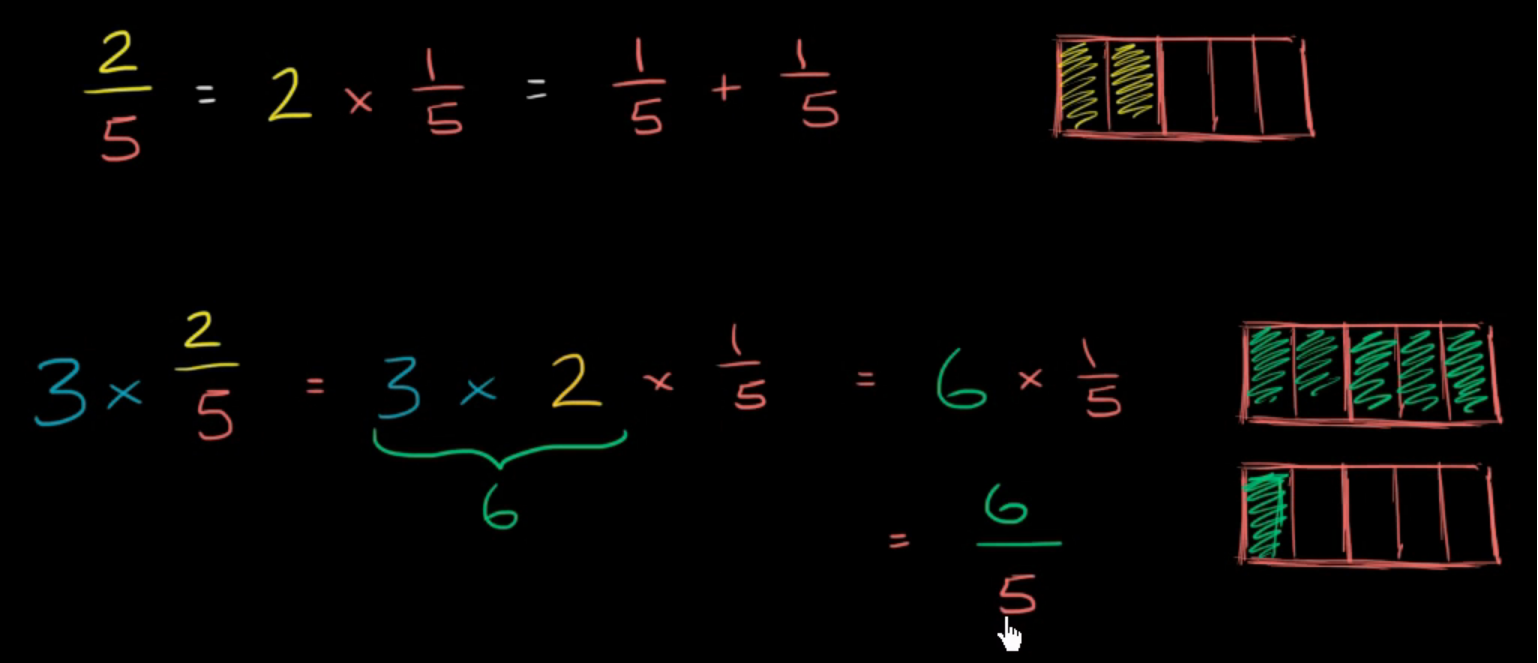 2/5 = 2 × 1/5 = 1/5 + 1/5
3 × 2/5 = 3 × 2 × 1/5 = 6 × 1/5
6
= 6/5